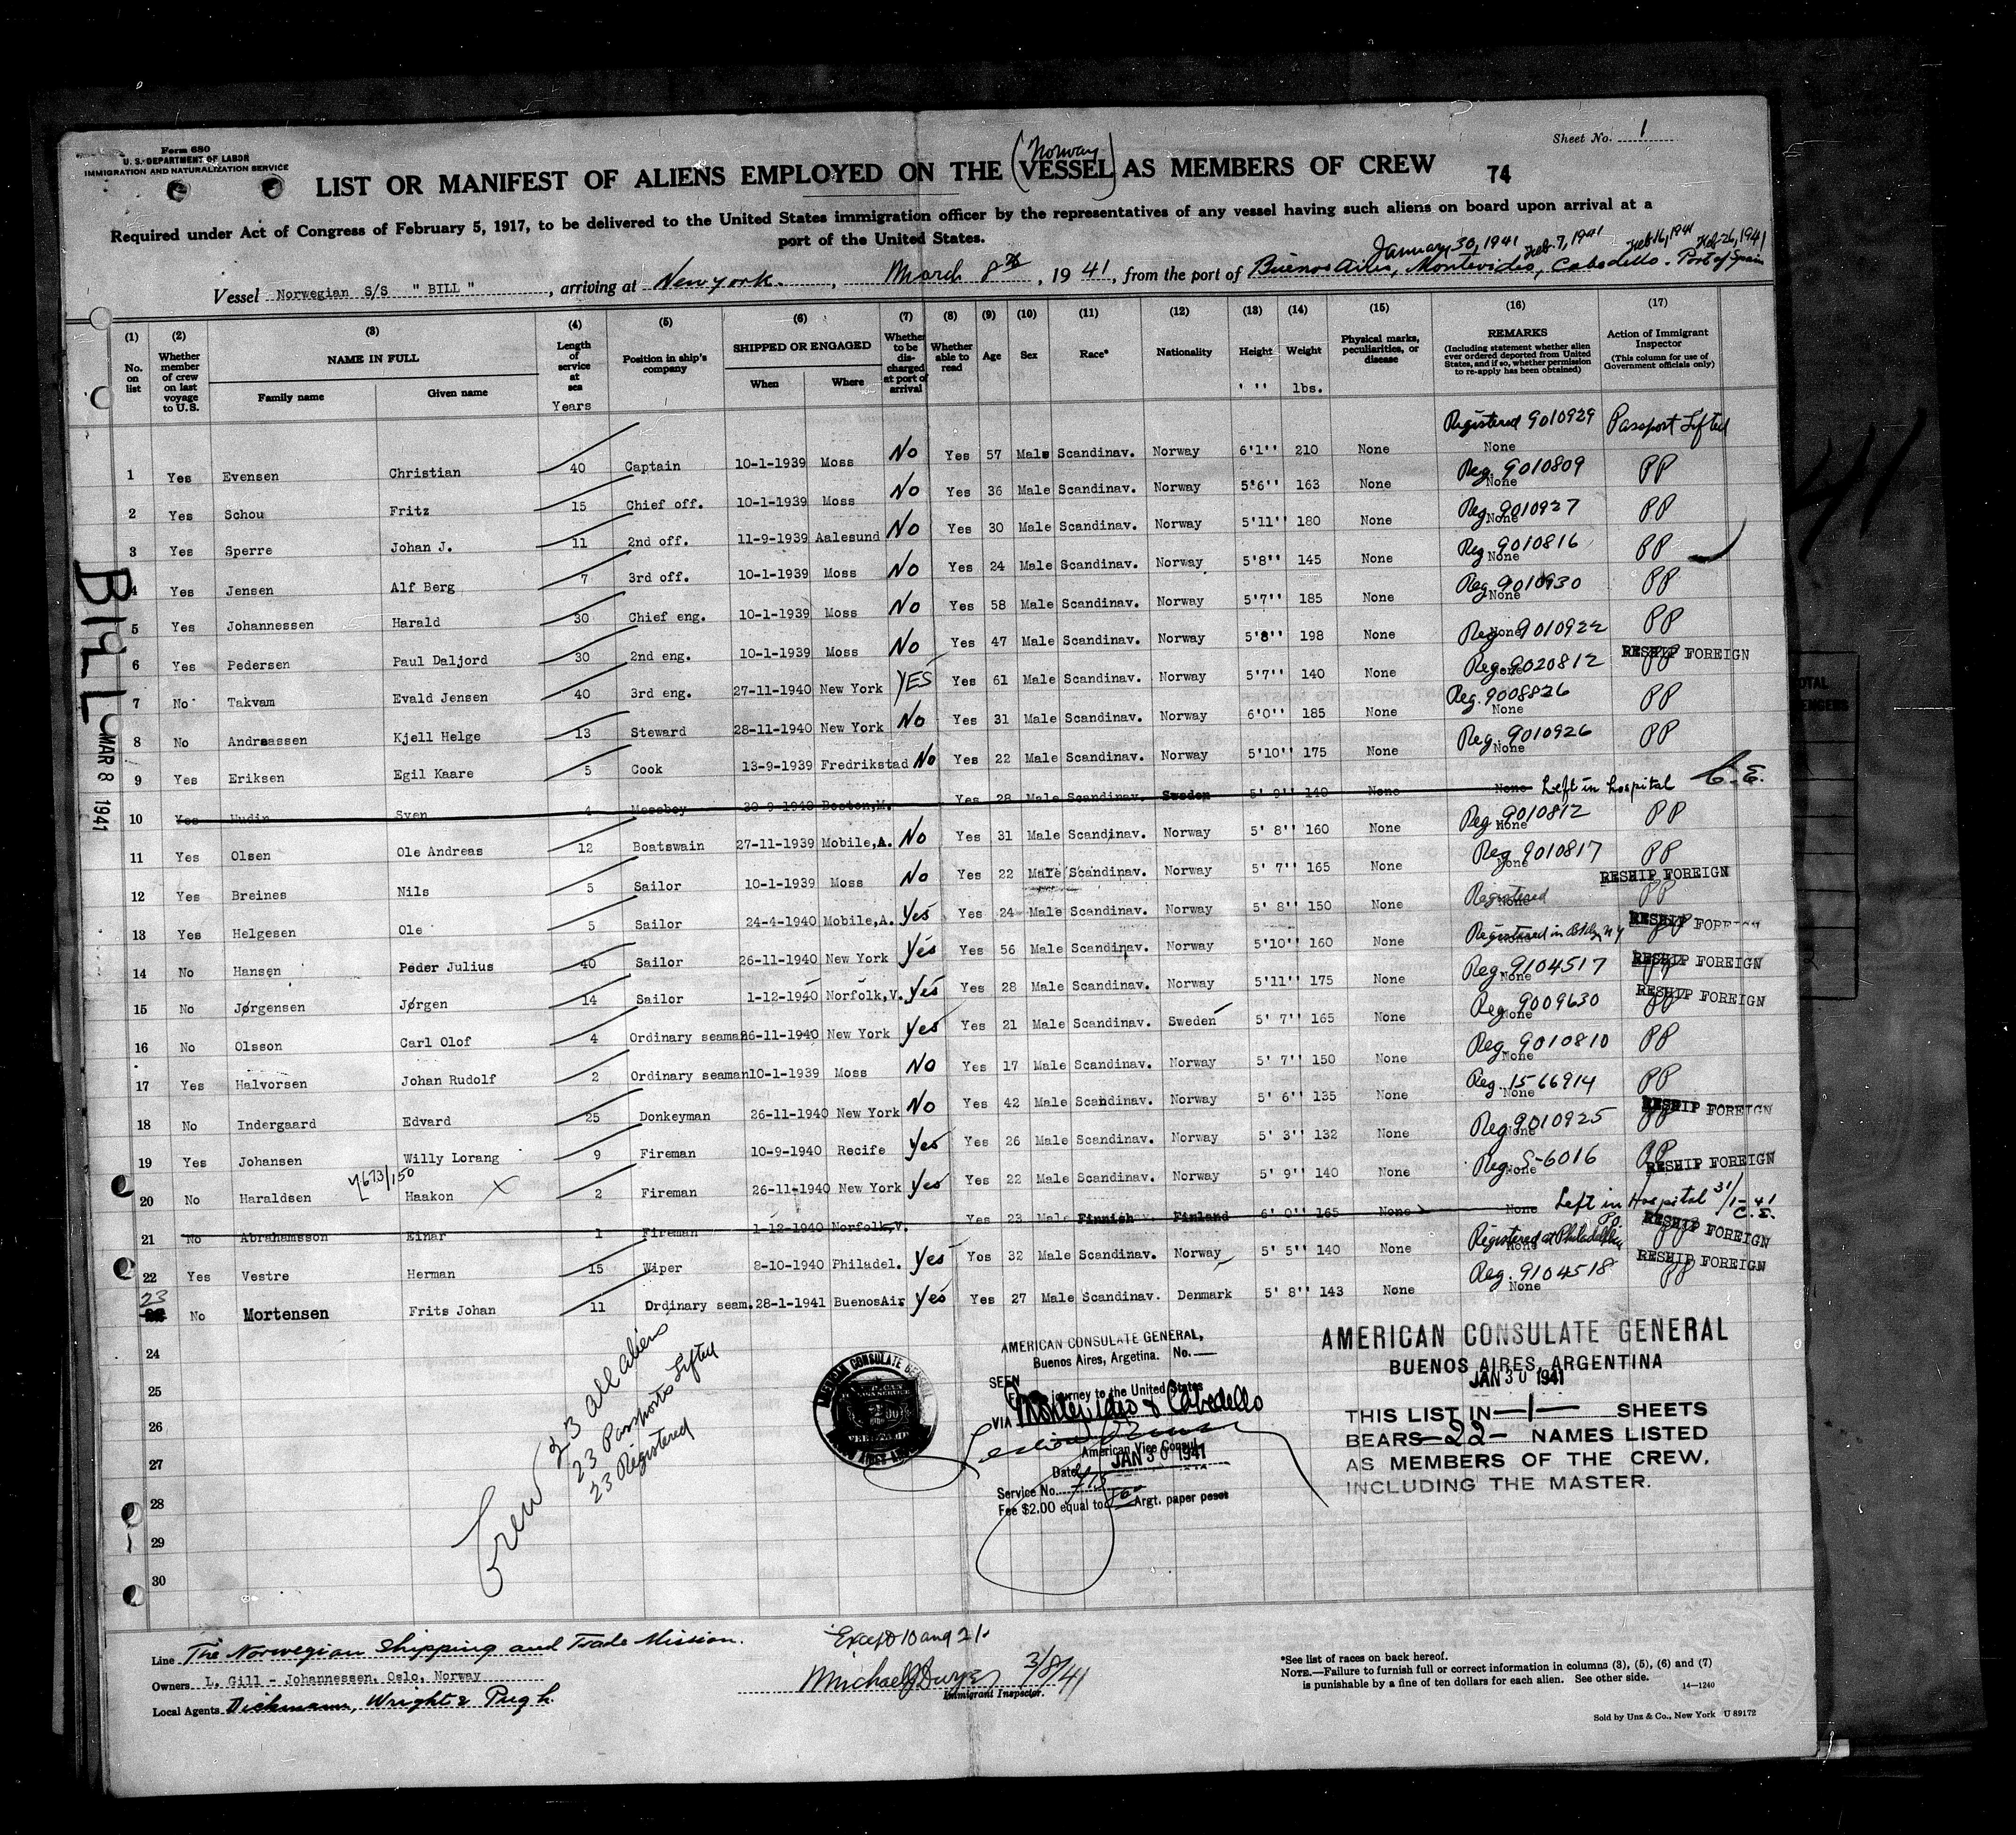 Form 680
U. S. DEPARTMENT OF LABOR
IMMIGRATION AND NATURALIZATION SERVICE
Sheet No. 1
(Norway)
LIST OR MANIFEST OF ALIENS EMPLOYED ON THE VESSEL AS MEMBERS OF CREW 74
Required under Act of Congress of February 5, 1917, to be delivered to the United States immigration officer by the representatives of any vessel having such aliens on board upon arrival at a
port of the United States.
January 30, 1941 Feb. 7, 1941 Feb 16, 1941 Feb. 26, 1941
Vessel Norwegian S/S "BILL", arriving at New York, March 8th, 1941, from the port of Buenos Aires, Montevideo, Cabedello. Port of Spain
(1) No. on list
(2) Whether member of crew on last voyage to U.S.
(3) NAME IN FULL
Family name
Given name
(4) Length of service at sea
Years
(5) Position in ship's company
(6) SHIPPED OR ENGAGED
When
Where
(7) Whether to be discharged at port of arrival
(8) Whether able to read
(9) Age
(10) Sex
(11) Race*
(12) Nationality
(13) Height ' ''
(14) Weight lbs.
(15) Physical marks, peculiarities, or disease
(16) REMARKS
(Including statement whether alien ever ordered deported from United States, and if so, whether permission to re-apply has been obtained)
(17) Action of Immigrant Inspector
(This column for use of Government officials only)
1 Yes Evensen Christian 40 Captain 10-1-1939 Moss No Yes 57 Male Scandinav. Norway 6'1'' 210 None None Registered 9010929 Passport Lifted
2 Yes Schou Fritz 15 Chief off. 10-1-1939 Moss No Yes 36 Male Scandinav. Norway 5'6'' 163 None None Reg. 9010809 PP
3 Yes Sperre Johan J. 11 2nd off. 11-9-1939 Aalesund No Yes 30 Male Scandinav. Norway 5'11'' 180 None None Reg. 9010927 PP
4 Yes Jensen Alf Berg 7 3rd off. 10-1-1939 Moss No Yes 24 Male Scandinav. Norway 5'8'' 145 None None Reg. 9010816 PP
5 Yes Johannessen Harald 30 Chief eng. 10-1-1939 Moss No Yes 58 Male Scandinav. Norway 5'7'' 185 None None Reg. 9010930 PP
6 Yes Pedersen Paul Daljord 30 2nd eng. 10-1-1939 Moss No Yes 47 Male Scandinav. Norway 5'8'' 198 None None Reg. 9010922 PP
7 No Takvam Evald Jensen 40 3rd eng. 27-11-1940 New York YES Yes 61 Male Scandinav. Norway 5'7'' 140 None None Reg. 9020812 PP RESHIP FOREIGN
8 No Andreassen Kjell Helge 13 Steward 28-11-1940 New York No Yes 31 Male Scandinav. Norway 6'0'' 185 None None Reg. 9008826 PP
9 Yes Eriksen Egil Kaare 5 Cook 13-9-1939 Fredrikstad No Yes 22 Male Scandinav. Norway 5'10'' 175 None None Reg. 9010926 PP
10 Yes Hudin Sven 4 Messboy 30-9-1940 Boston,M. Yes 28 Male Scandinav. Sweden 5' 9'' 140 None None Left in hospital C.E.
11 Yes Olsen Ole Andreas 12 Boatswain 27-11-1939 Mobile,A. No Yes 31 Male Scandinav. Norway 5' 8'' 160 None None Reg. 9010812 PP
12 Yes Breines Nils 5 Sailor 10-1-1939 Moss No Yes 22 Male Scandinav. Norway 5' 7'' 165 None None Reg. 9010817 PP
13 Yes Helgesen Ole 5 Sailor 24-4-1940 Mobile,A. Yes Yes 24 Male Scandinav. Norway 5' 8'' 150 None None Registered PP RESHIP FOREIGN
14 No Hansen Peder Julius 40 Sailor 26-11-1940 New York Yes Yes 56 Male Scandinav. Norway 5'10'' 160 None None Registered in Bklyn NY PP RESHIP FOREIGN
15 No Jørgensen Jørgen 14 Sailor 1-12-1940 Norfolk,V. Yes Yes 28 Male Scandinav. Norway 5'11'' 175 None None Reg. 9104517 PP RESHIP FOREIGN
16 No Olsson Carl Olof 4 Ordinary seaman 26-11-1940 New York Yes Yes 21 Male Scandinav. Sweden 5' 7'' 165 None None Reg. 9009630 PP RESHIP FOREIGN
17 Yes Halvorsen Johan Rudolf 2 Ordinary seaman 10-1-1939 Moss No Yes 17 Male Scandinav. Norway 5' 7'' 150 None None Reg. 9010810 PP
18 No Indergaard Edvard 25 Donkeyman 26-11-1940 New York No Yes 42 Male Scandinav. Norway 5' 6'' 135 None None Reg. 1566914 PP
19 Yes Johansen Willy Lorang 9 Fireman 10-9-1940 Recife Yes Yes 26 Male Scandinav. Norway 5' 3'' 132 None None Reg. 9010925 PP RESHIP FOREIGN
20 No Haraldsen Haakon 2 Fireman 26-11-1940 New York Yes Yes 22 Male Scandinav. Norway 5' 9'' 140 None None Reg. S-6016 PP RESHIP FOREIGN
21 No Abrahamsson Einar 1 Fireman 1-12-1940 Norfolk,V. Yes 23 Male Finnish Finland 6' 0'' 165 None None Left in Hospital 31/1-41 C.E.
22 Yes Vestre Herman 15 Wiper 8-10-1940 Philadel. Yes Yes 32 Male Scandinav. Norway 5' 5'' 140 None None Registered at Philadelphia Pa. PP RESHIP FOREIGN
23 No Mortensen Frits Johan 11 Ordinary seam. 28-1-1941 BuenosAir. Yes Yes 27 Male Scandinav. Denmark 5' 8'' 143 None None Reg. 9104518 PP RESHIP FOREIGN
24
25
26
27
28
29
30
BILL
MAR 8 1941
41
Crew 23 all aliens
23 Passports Lifted
23 Registered
AMERICAN CONSULATE GENERAL,
Buenos Aires, Argetina. No.
SEEN
For journey to the United States
VIA Montevideo & Cabedello
American Vice Consul
Date JAN 30 1941
Service No. 713
Fee $2.00 equal to Argt. paper pesos
AMERICAN CONSULATE GENERAL
BUENOS AIRES, ARGENTINA
JAN 30 1941
THIS LIST IN —1— SHEETS
BEARS —22— NAMES LISTED
AS MEMBERS OF THE CREW,
INCLUDING THE MASTER.
Line The Norwegian Shipping and Trade Mission.
Owners L. Gill - Johannessen, Oslo, Norway
Local Agents Dickmann, Wright & Pugh.
Except 10 and 21.
Michael J Dwyer 3/8/41
Immigrant Inspector.
*See list of races on back hereof.
NOTE.—Failure to furnish full or correct information in columns (3), (5), (6) and (7)
is punishable by a fine of ten dollars for each alien. See other side.
14—1240
Sold by Unz & Co., New York U 89172